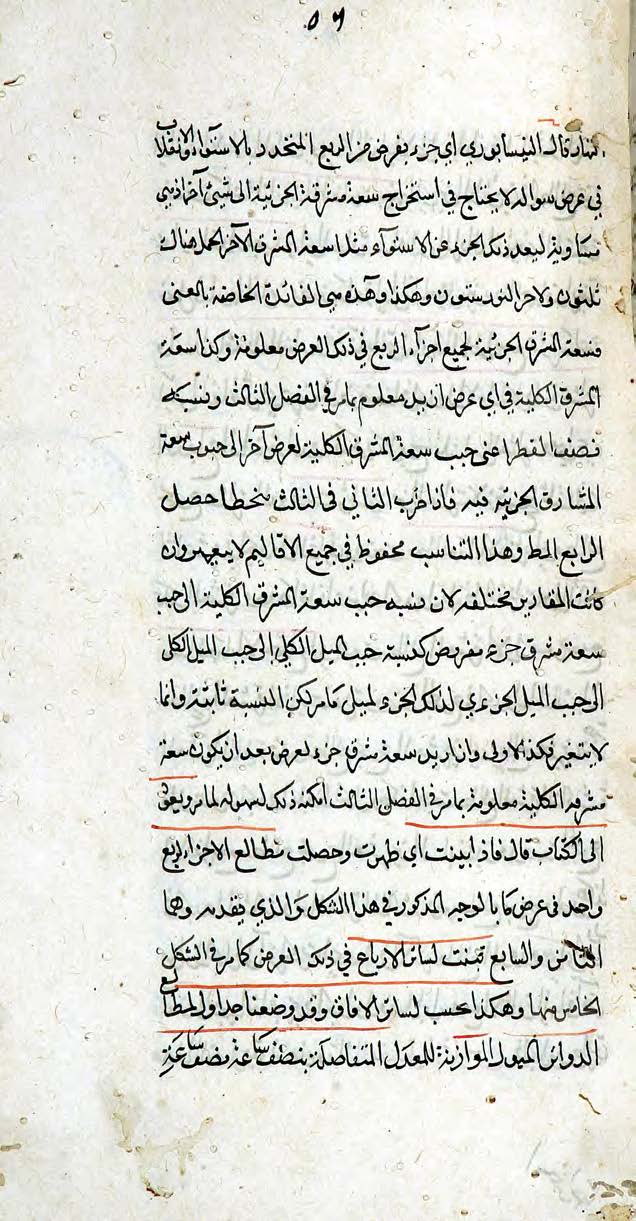 ٥٦
النهار قال النيسابوري اي جزء يفرض من الربع المتحدد بالاستواء والانقلاب
في عرض سواله لا يحتاج في استخراج سعة مشرقه الجزئية الى شيئ آخر اذ هي
مساوية لبعد ذلك الجزء عن الاستوآء مثلا سعة المشرق لآخر الحمل هناك
ثلثون ولاخر الثور ستون وهكذا وهذه هي الفائدة الخاصة بالمعنى
فسعة المشرق الجزئية لجميع اجزآء الربع في ذلك العرض معلومة وكذا سعة
المشرق الكلية في اي عرض اريد معلوم بما مر في الفصل الثالث ونسبة
نصف القطر اعنى جيب سعة المشرق الكلية لعرض آخر الى جيوب سعة
المشارق الجزئيه فيه فاذا ضرب الثاني في الثالث منحطا حصل
الرابع المط وهذا التناسب محفوظ في جميع الاقاليم لا يتغير وان
كانت المقادير مختلفه لان نسبه جيب سعة المشرق الكلية الى جيب
سعة مشرق جزء مفروض كنسبة جيب الميل الكلي الى جيب الميل الكلى
الى جيب الميل الجزءي لذلك الجزء لميلى ما مر لكن النسبة ثابتة وانما
لا يتغير فكذا الاولى وان اريد سعة مشرق جزء لعرض بعد ان يكون سعة
مشرقه الكلية معلومة بما مر في الفصل الثالث امكنه ذلك لسهوله لما مر ويعود
الى الكتاب قال فاذا بينت اي ظهرت وحصلت مطالع الاجزاء لربع
واحد فى عرض ما بالوجه المذكور في هذا الشكل والذي يقدمه وهما
الثامن والسابع تمت لسائر الارباع في ذلك العرض كما مر في الشكل
الخامس منها وهكذا يحسب لسائر الافاق وقد وضعنا جداول المطالع
الدوائر الميول الموازية للمعدل المتفاضلة بنصف ساعة نصف ساعة